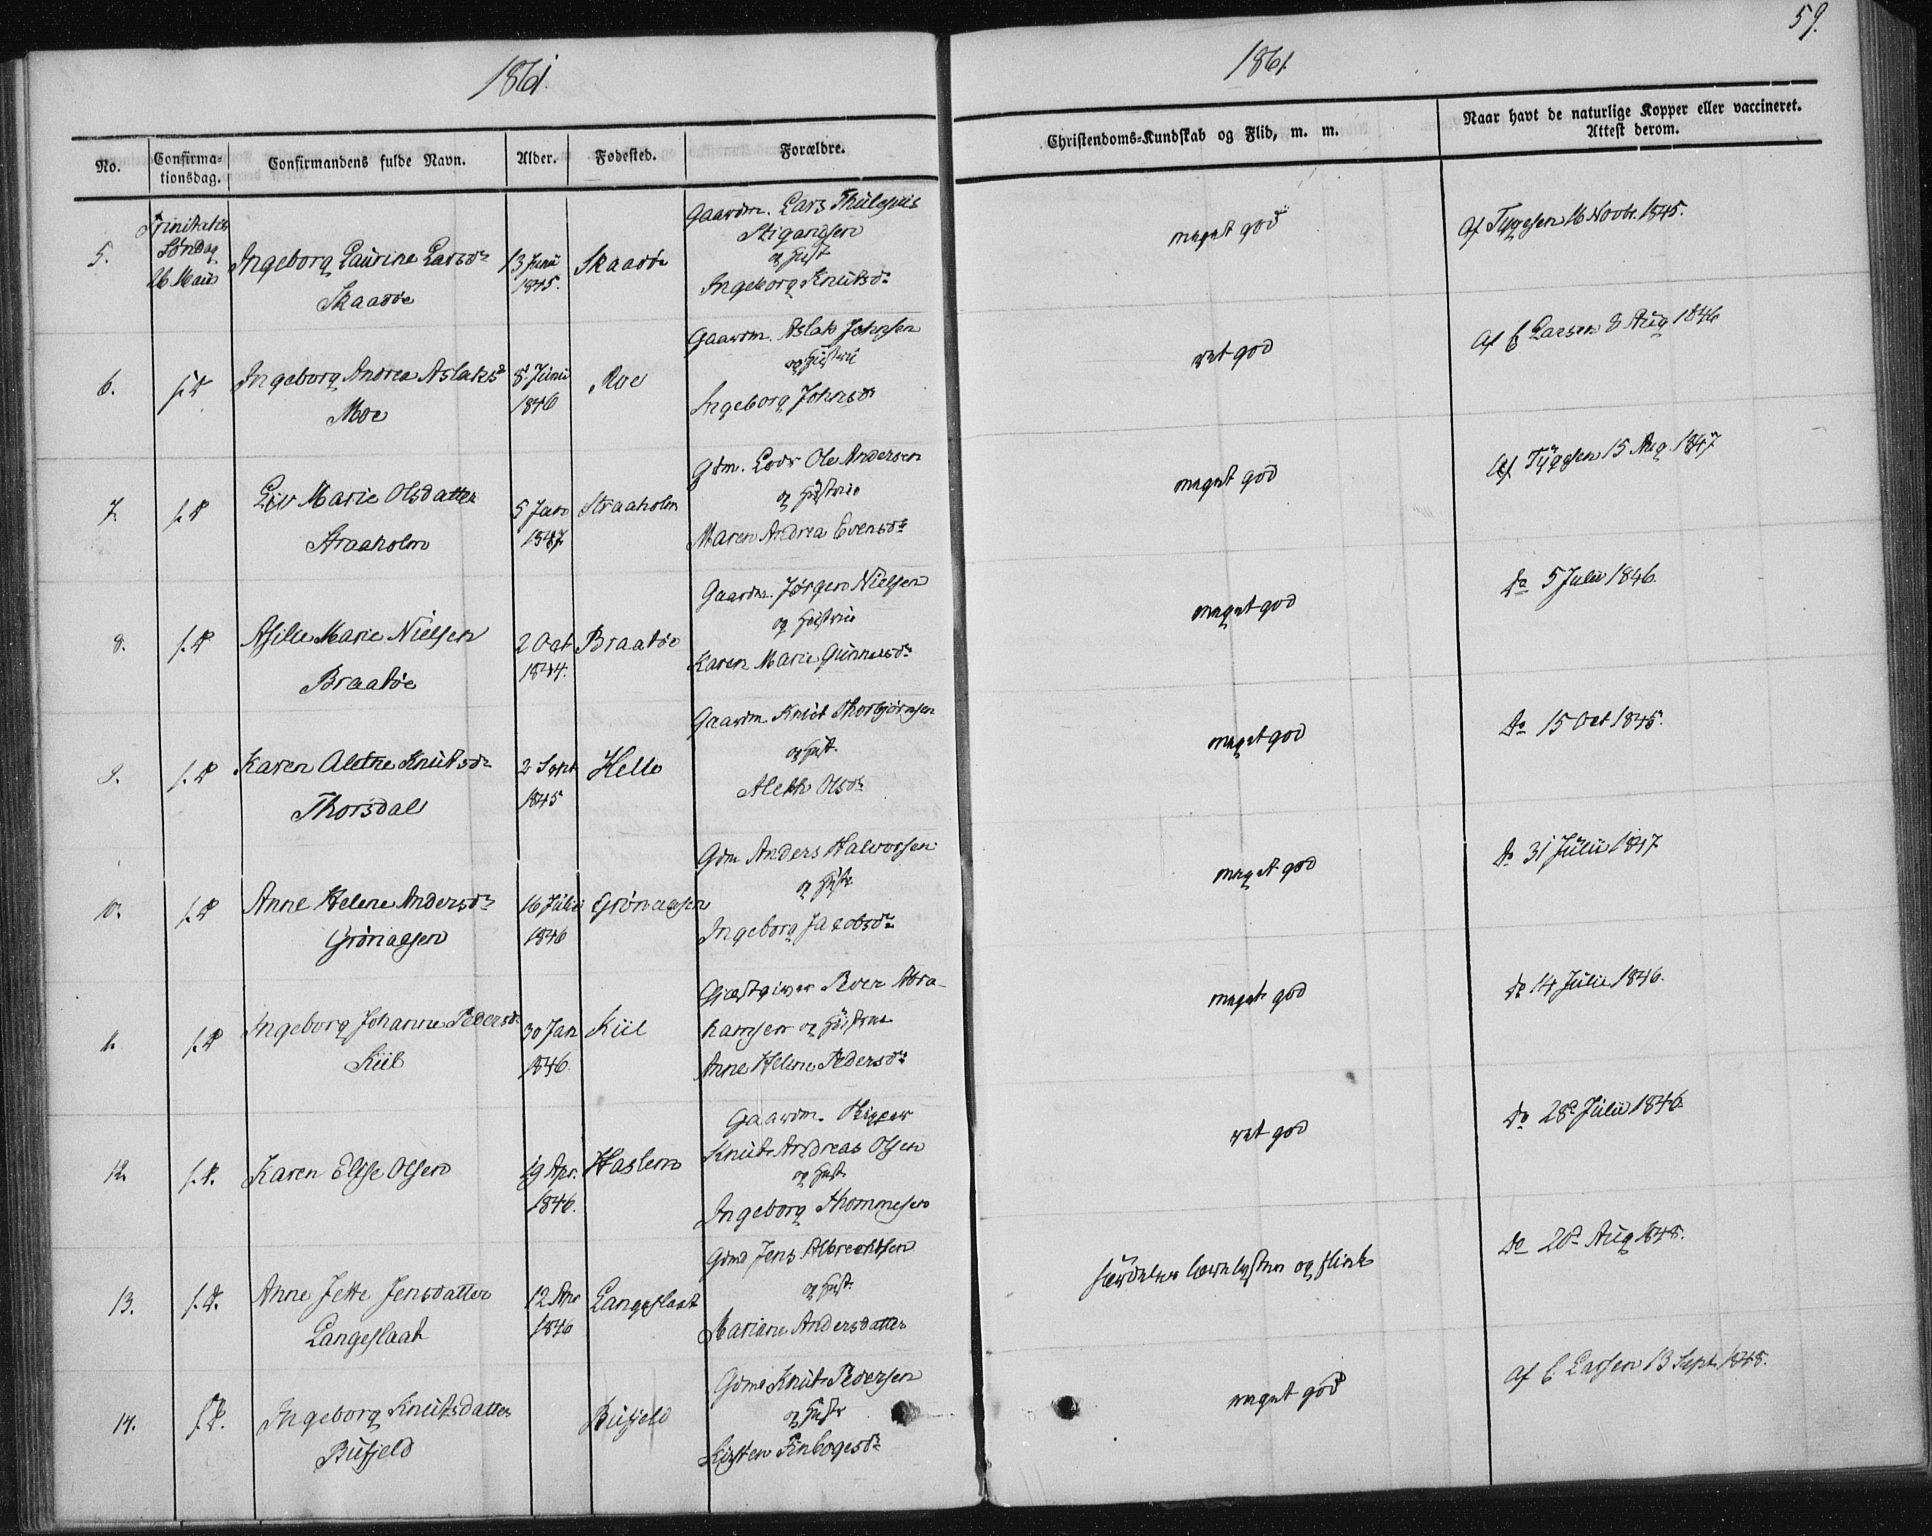 1861.
1861.
59.
No.
Confirma-
tionsdag.
Confirmandens fulde Navn.
Alder.
Fødested.
Forældre.
Christendoms-Kundskab og Flid, m. m.
Naar havt de naturlige Kopper eller vaccineret.
Attest derom.
5.
Trinitatis
Søndag
26 Maii
Ingeborg Laurine Larsdr
Skaarøe
13 Junii
1845.
Skaarøe
Gaardm. Lars
og Hust
Ingeborg Knutsdr
meget god
Af Tygesen 16 Novbr. 1845.
6.
s. D
Ingeborg Andrea Aslaksd
Moe
8 Junii
1846
Moe
Gaardm. Aslak Johnsen
og Hustru
Ingeborg Johnsdr
ret god
Af E Larsen 8 Aug 1846
7.
s. D
Liv Marie Olsdatter
Straaholm
5 Jan
1847
Straaholm
Gdm. Lods Ole Andersen
og Hustrue
Maren Andrea Evensdr
meget god
Af Tygesen 15 Aug. 1847
8.
s. D
Asilie Marie Nielsen
Braatøe
2 Oct
1844.
Braatøe
Gaardm. Jørgen Nielsen
og Hustrue
Karen Marie Gunnersdr
meget god
do 5 Julii 1846.
9.
s. D
Karen Alethe Knutsdr
Thorsdal
2 Sept
1845
Helle
Gaardm. Knut Thorbjørnsen
og Hust.
Aleth Olsdr
meget god
do 15 Oct 1845.
10.
s. D
Anne Helene Andersdr
Grønaasen
16 Julii
1846
Grønaasen
Gdm Anders Halvorsen
og Hustr
Ingeborg Jacobsdr
meget god
do 31 Julii 1847
11.
s. D
Ingeborg Johanne Pedersdr
Kiil
30 Jan
1846.
Kiil
Giæstgiver Peder Abra-
hamsen og Hustrue
Anne Helene Pedersdr
meget god
do 14 Julii 1846.
12.
s. D.
Karen Elise Olsen
19 Apr.
1846.
Haslem
Gaardm. Skipper
Knut Andreas Olsen
og Hust.
Ingeborg Thommesen
ret god
do 28d Julii 1846.
13.
s. D.
Anne Jette Jensdatter
Langeslaat
12 Apr
1846
Langeslaat
Gdmd Jens Albrechtsen
og Hust.
Mariane Andersdatter
særdeles lærelysten og flink
do 20d Aug 1848.
14.
s. D.
Ingeborg Knutsdatter
Bufjeld
Bufjeld
Gdmd Knut Pedersen
og Hustr
Kirsten Finbogesdr
meget god
Af E Larsen 13 Sept. 1848.